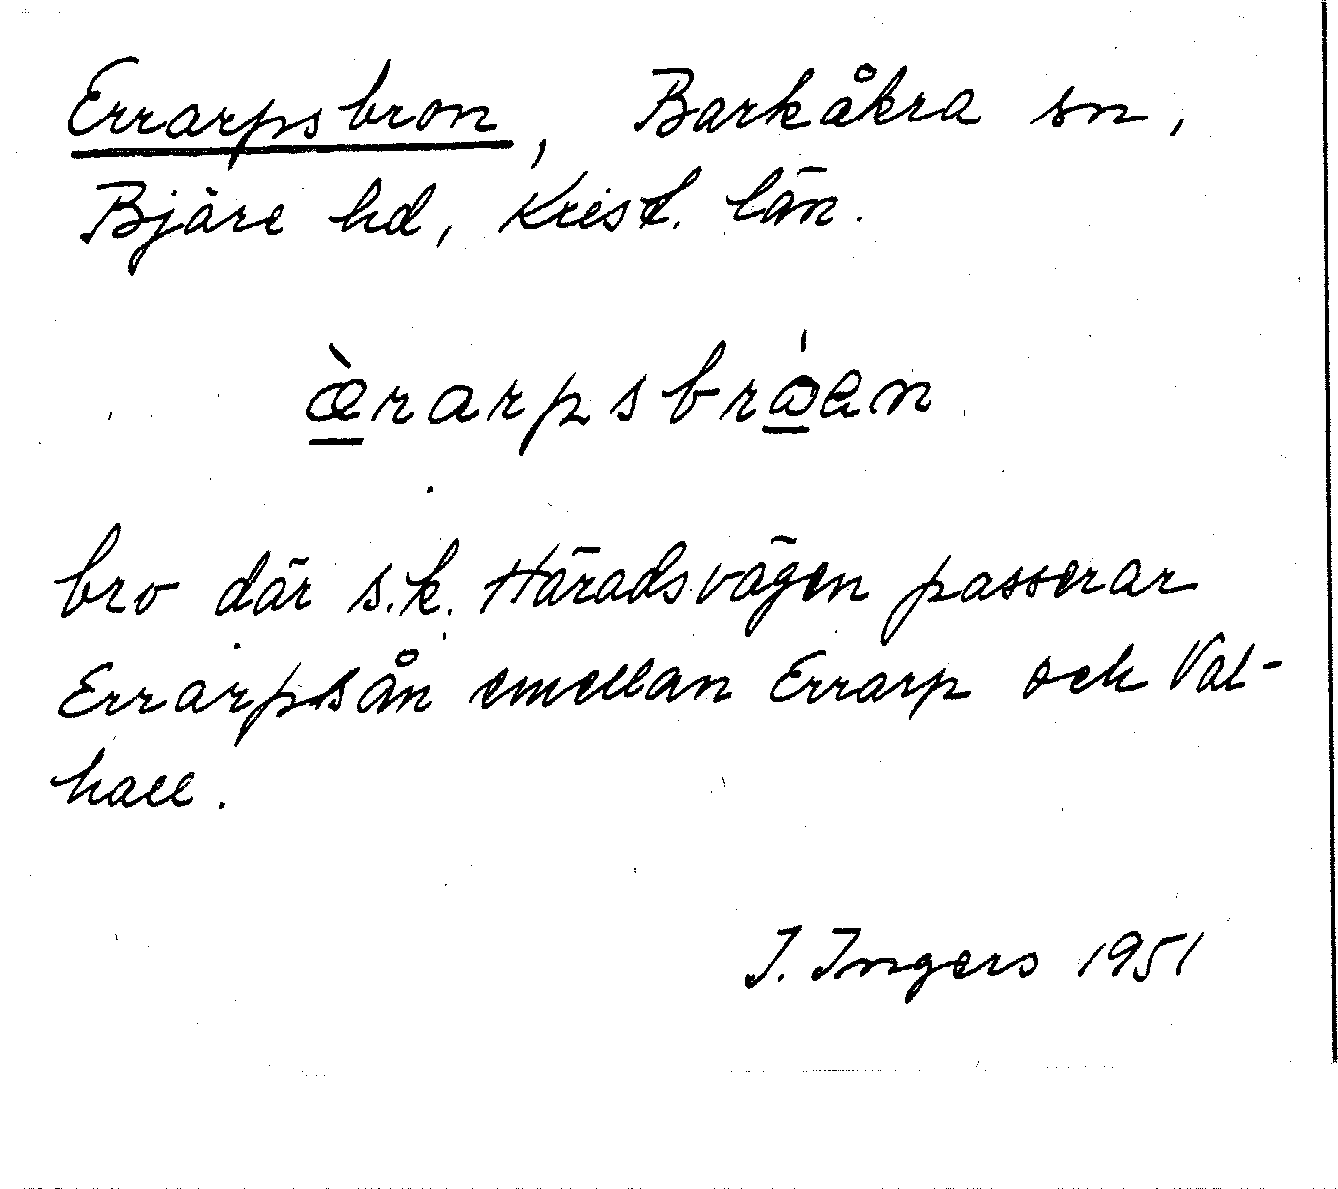 Errarpsbron, Barkåkra sn,
Bjäre hd, Krist. län.
æ̀rarpsbrǻen
bro där s.k. Häradsvägen passerar
Errarpsån emellan Errarp och Val-
hall.
I. Ingers 1951